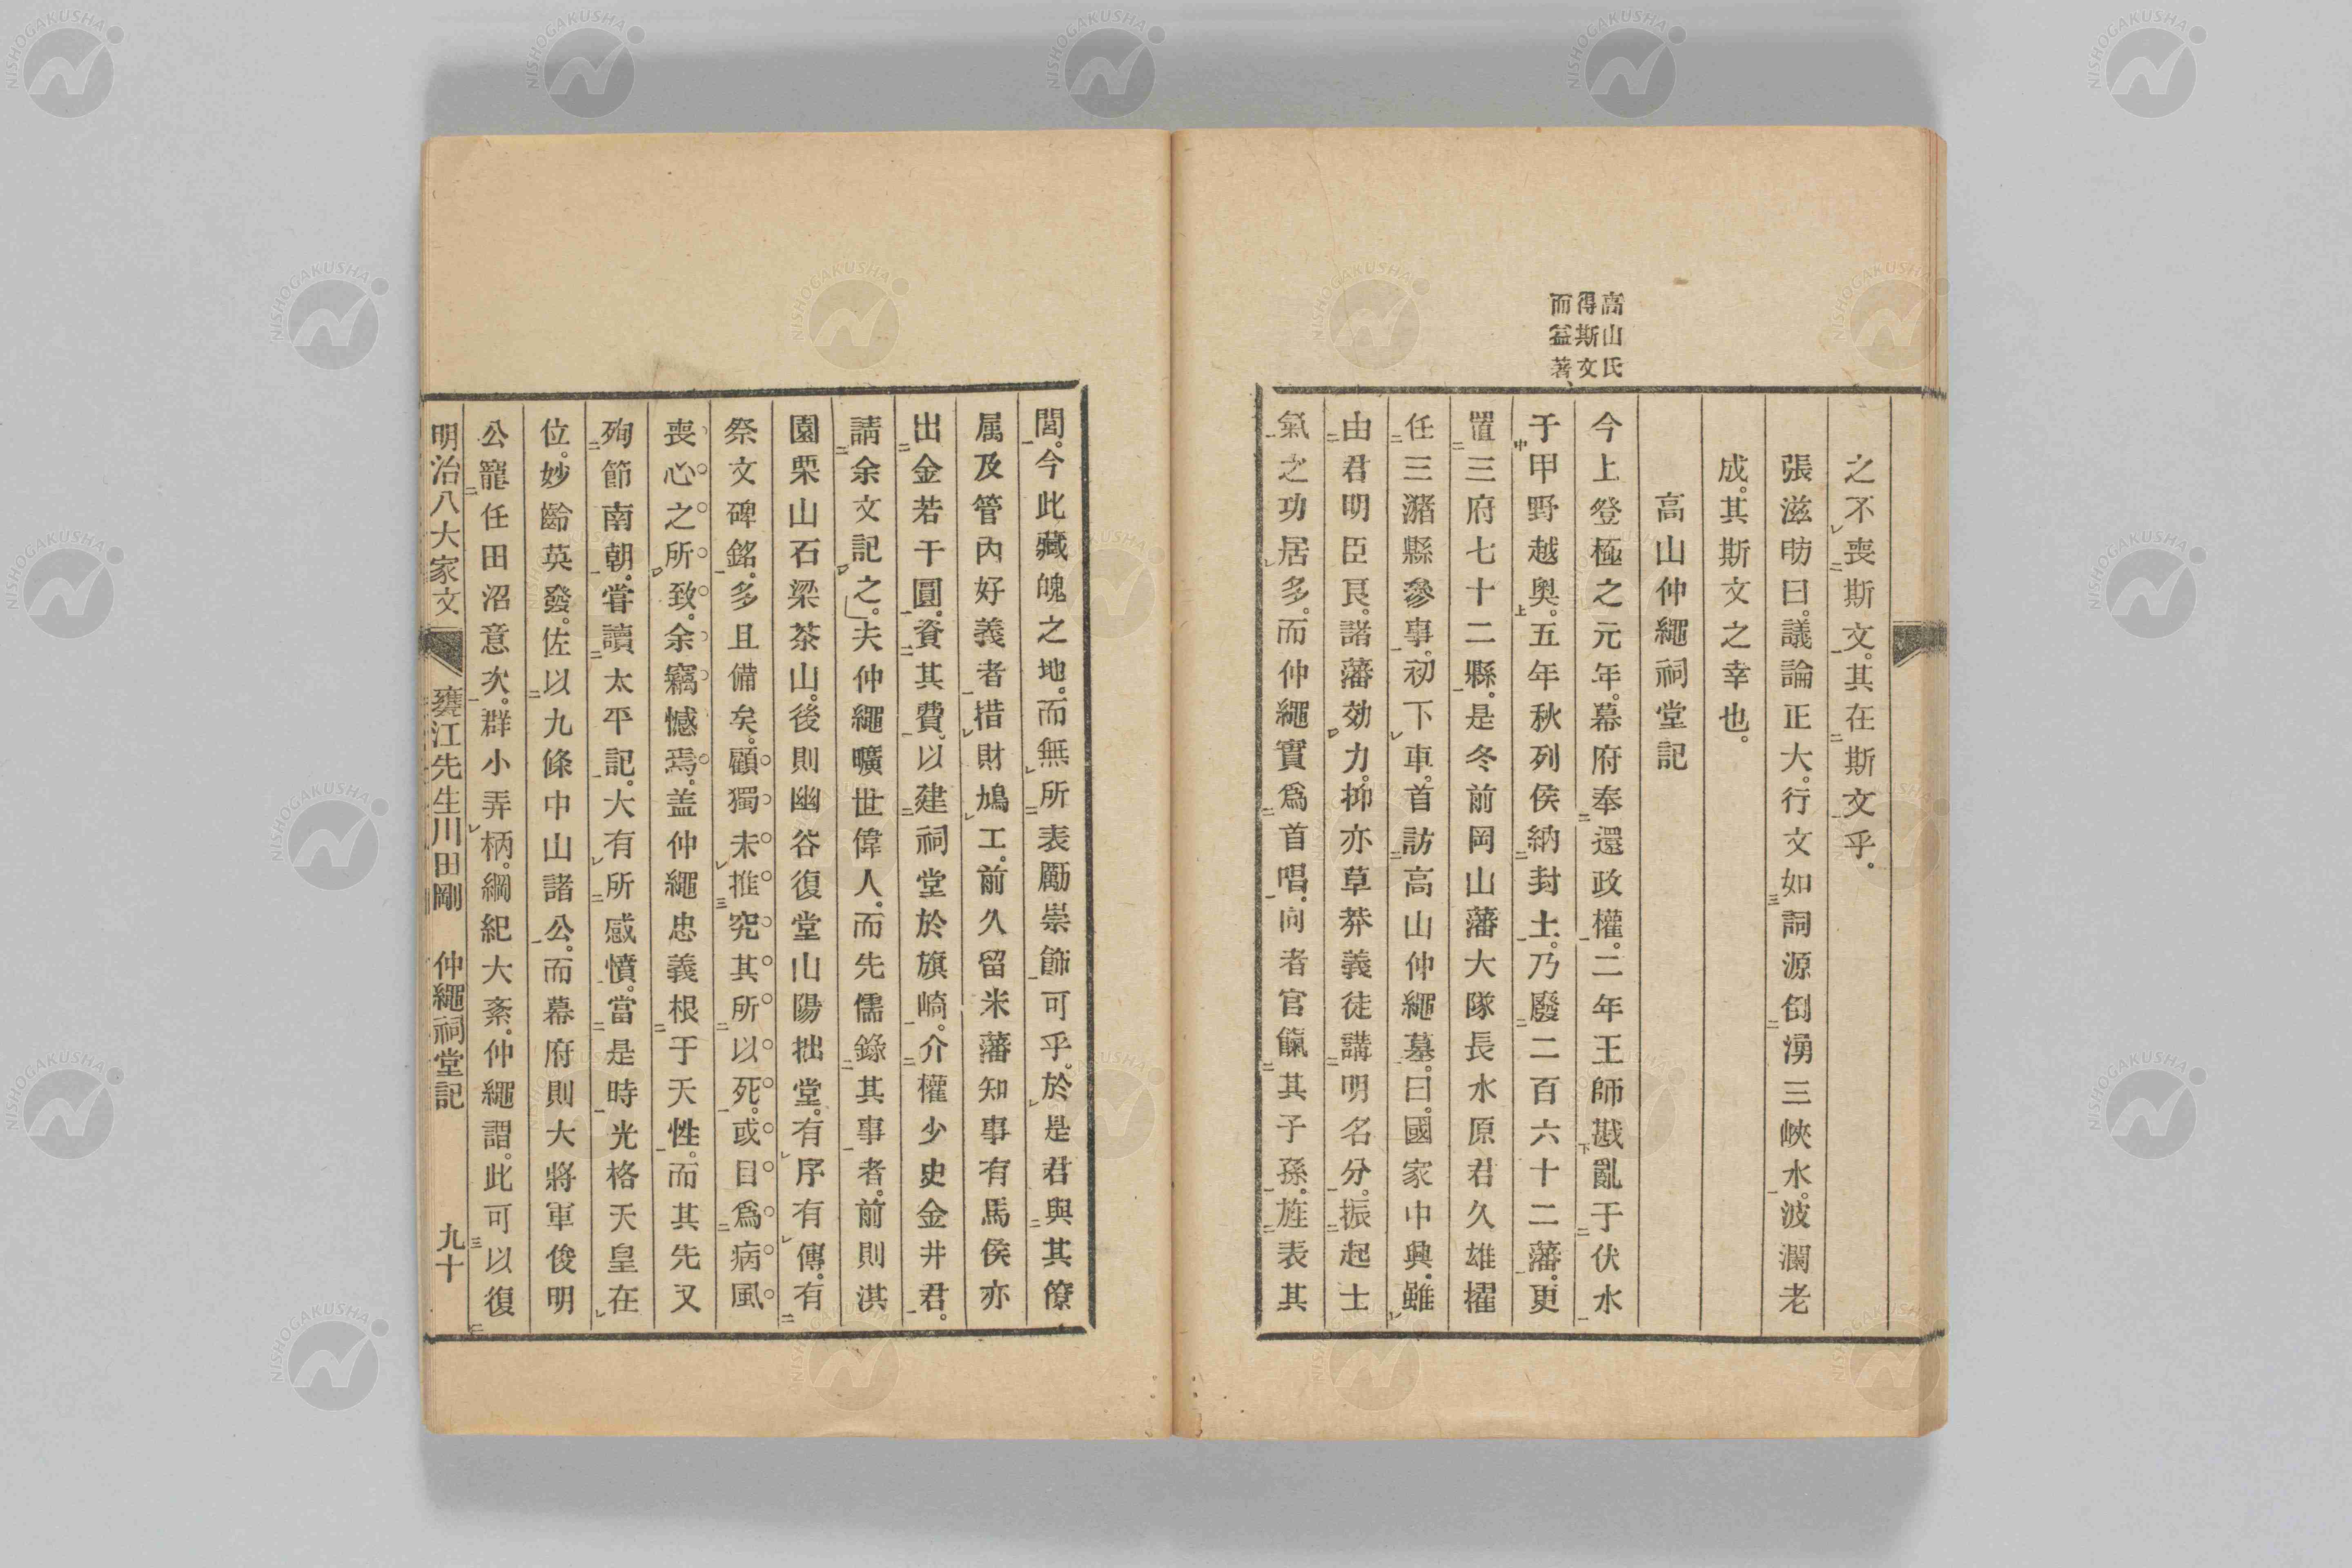 高山氏
得斯文
而益著、
之不喪斯文。其在斯文乎。
張滋昉曰。議論正大。行文如詞源倒湧三峽水。波瀾老
成。其斯文之幸也。
高山仲繩祠堂記
今上登極之元年。幕府奉還政權。二年王師戡亂于伏水
于甲野越奧。五年秋列侯納封土。乃廢二百六十二藩。更
置三府七十二縣。是冬前岡山藩大隊長水原君久雄擢
任三潴縣參事。初下車。首訪高山仲繩墓。曰。國家中興。雖
由君明臣良。諸藩効力。抑亦草莽義徒講明名分。振起士
氣之功居多。而仲繩實爲首唱。向者官餼其子孫。旌表其
閭。今此藏魄之地。而無所表勵崇飾可乎。於是君與其僚
属及管内好義者措財鳩工。前久留米藩知事有馬侯亦
出金若干圓。資其費。以建祠堂於旗崎。介權少史金井君。
請余文記之。夫仲繩曠世偉人。而先儒錄其事者。前則淇
園栗山石梁茶山。後則幽谷復堂山陽拙堂。有序有傳。有
祭文碑銘。多且備矣。顧獨未推究其所以死。或目爲病風
喪心之所致。余竊憾焉。盖仲繩忠義根于天性。而其先又
殉節南朝。嘗讀太平記。大有所感憤。當是時光格天皇在
位。妙齡英發。佐以九條中山諸公。而幕府則大將軍俊明
公寵任田沼意次。群小弄柄。綱紀大紊。仲繩謂。此可以復
明治八大家文 甕江先生川田剛 仲繩祠堂記 九十
NISHOGAKUSHA